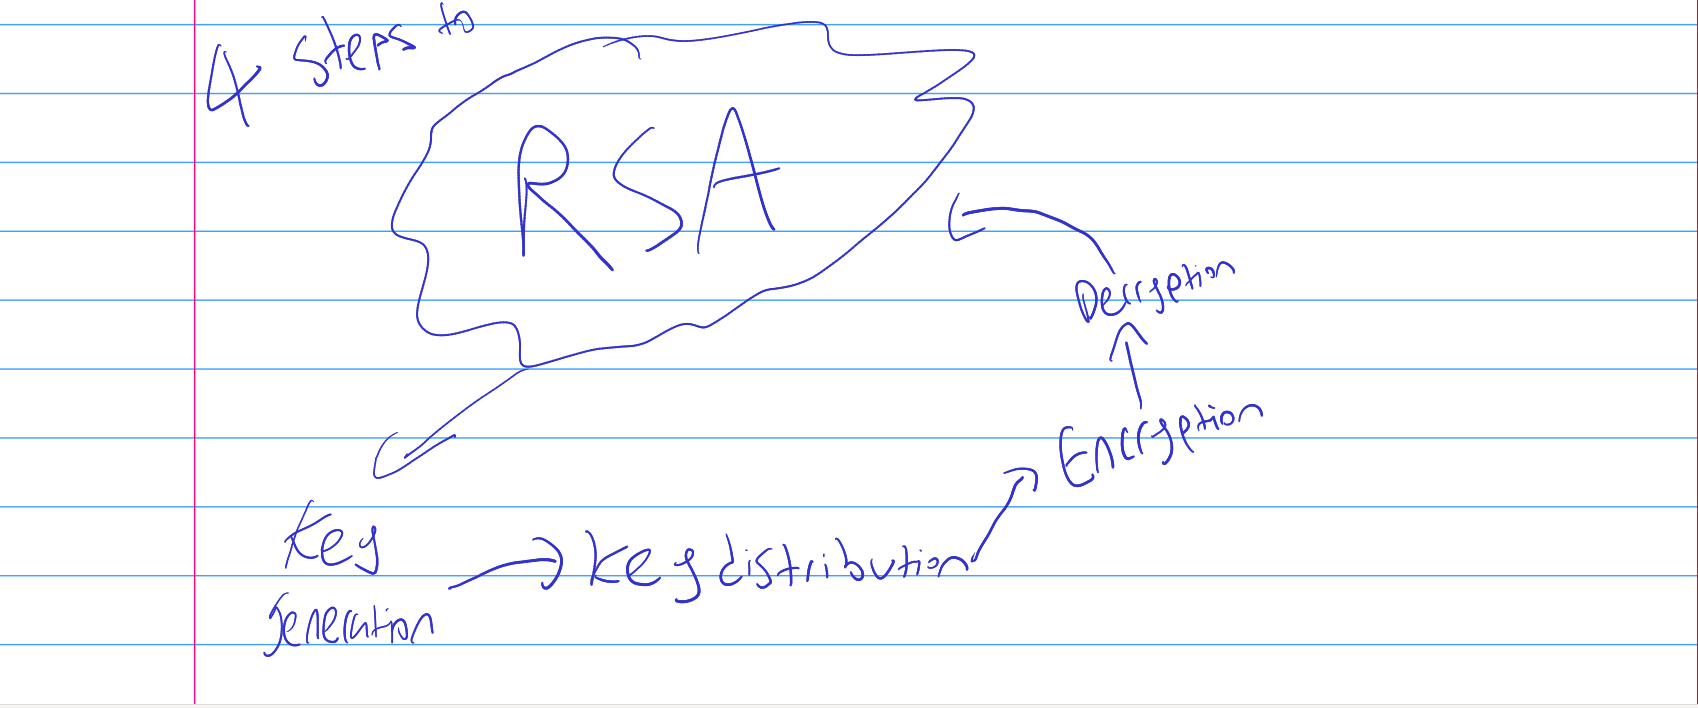 4 steps to
RSA
Key
generation
key distribution
Encryption
Decryption